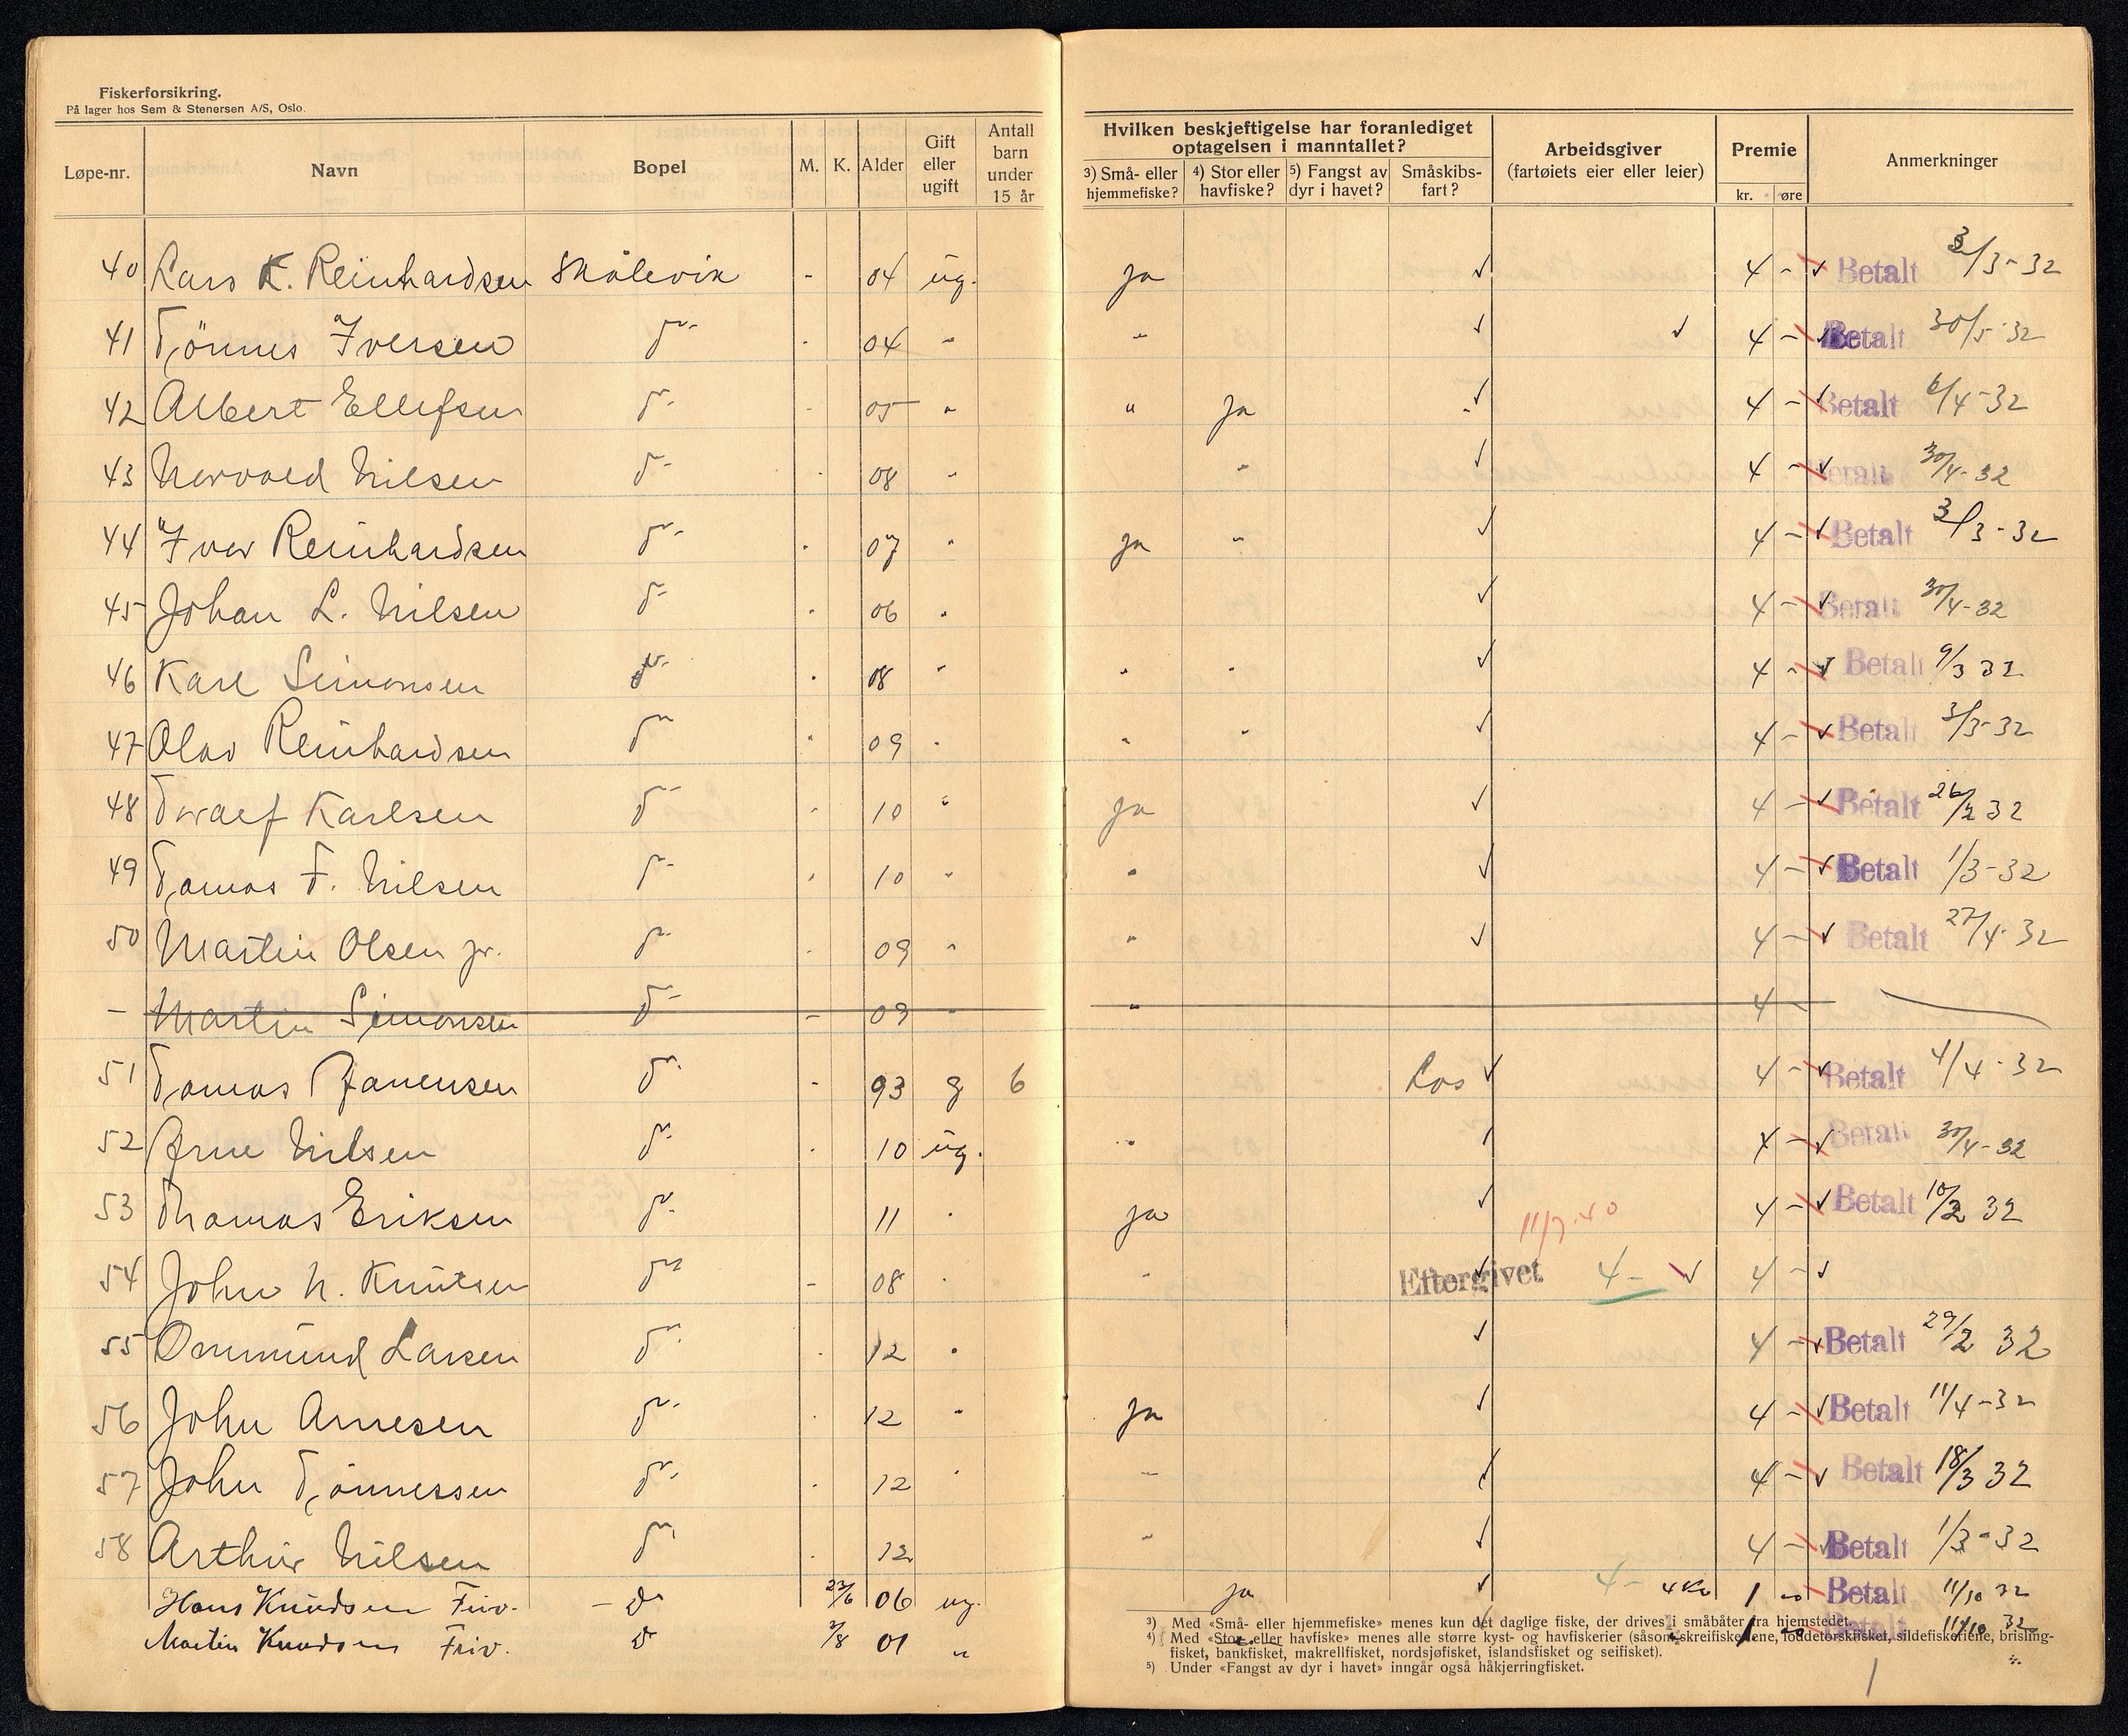 Fiskerforsikring.
På lager hos Sem & Stenersen A/S, Oslo.
Løpe-nr. Navn Bopel M. K. Alder Gift eller ugift Antall barn under 15 år
Hvilken beskjeftigelse har foranlediget optagelsen i manntallet?
3) Små- eller hjemmefiske? 4) Stor eller havfiske? 5) Fangst av dyr i havet? Småskibsfart? Arbeidsgiver (fartøiets eier eller leier) Premie kr. øre Anmerkninger
40 Lars K. Reinhardsen Skålevik - 04 ug. ja ✓ 4 - ✓ Betalt 3/3-32
41 Tönnes Iversen do - 04 " " ✓ ✓ 4 - Betalt 30/5-32
42 Albert Ellefsen do - 05 " " ja ✓ 4 - ✓ Betalt 6/4-32
43 Norvald Nilsen do - 08 " " ✓ 4 - ✓ Betalt 30/4-32
44 Iver Reinhardsen do - 07 " ja " ✓ 4 - ✓ Betalt 3/3-32
45 Johan L. Nilsen do - 06 " ✓ 4 - ✓ Betalt 30/4-32
46 Karl Simonsen do - 08 " " " ✓ 4 - ✓ Betalt 9/3 32
47 Olav Reinhardsen do - 09 " " " ✓ 4 - ✓ Betalt 3/3-32
48 Toralf Karlsen do - 10 " ja ✓ 4 - ✓ Betalt 26/2 32
49 Tomas T. Nilsen do - 10 " " ✓ 4 - ✓ Betalt 1/3-32
50 Martin Olsen jr. do - 09 " " ✓ 4 - ✓ Betalt 27/4-32
- Martin Simonsen do - 09 " " 4 -
51 Tomas Janensen do - 93 g 6 Los ✓ 4 - ✓ Betalt 4/4-32
52 Arne Nilsen do - 10 ug. " 4 - ✓ Betalt 30/4-32
53 Thomas Eriksen do 11 " ja ✓ 11/7-40 4 - ✓ Betalt 10/2 32
54 John N. Knutsen do - 08 " " ✓ Eftergivet 4 - ✓ 4 - ✓
55 Ommund Larsen do - 12 " ✓ 4 - ✓ Betalt 29/2 32
56 John Arnesen do - 12 " ja ✓ 4 - ✓ Betalt 11/4-32
57 John Tönnessen do - 12 " " ✓ 4 - ✓ Betalt 18/3 32
58 Arthur Nilsen do - 12 " ✓ 4 - ✓ Betalt 1/3-32
Hans Knudsen Friv. - do 23/6 06 ug. ja ✓ 4 - 4 Kr 1 20 Betalt 11/10 32
Martin Knudsen Friv. do 2/8 01 " 1 20 Betalt 11/10 32
3) Med «Små- eller hjemmefiske» menes kun det daglige fiske, der drives i småbåter fra hjemstedet.
4) Med «Stor eller havfiske» menes alle større kyst- og havfiskerier (såsom skreifiskeriene, loddetorskfisket, sildefiskeriene, brisling-
fisket, bankfisket, makrellfisket, nordsjøfisket, islandsfisket og seifisket).
5) Under «Fangst av dyr i havet» inngår også håkjerringfisket.